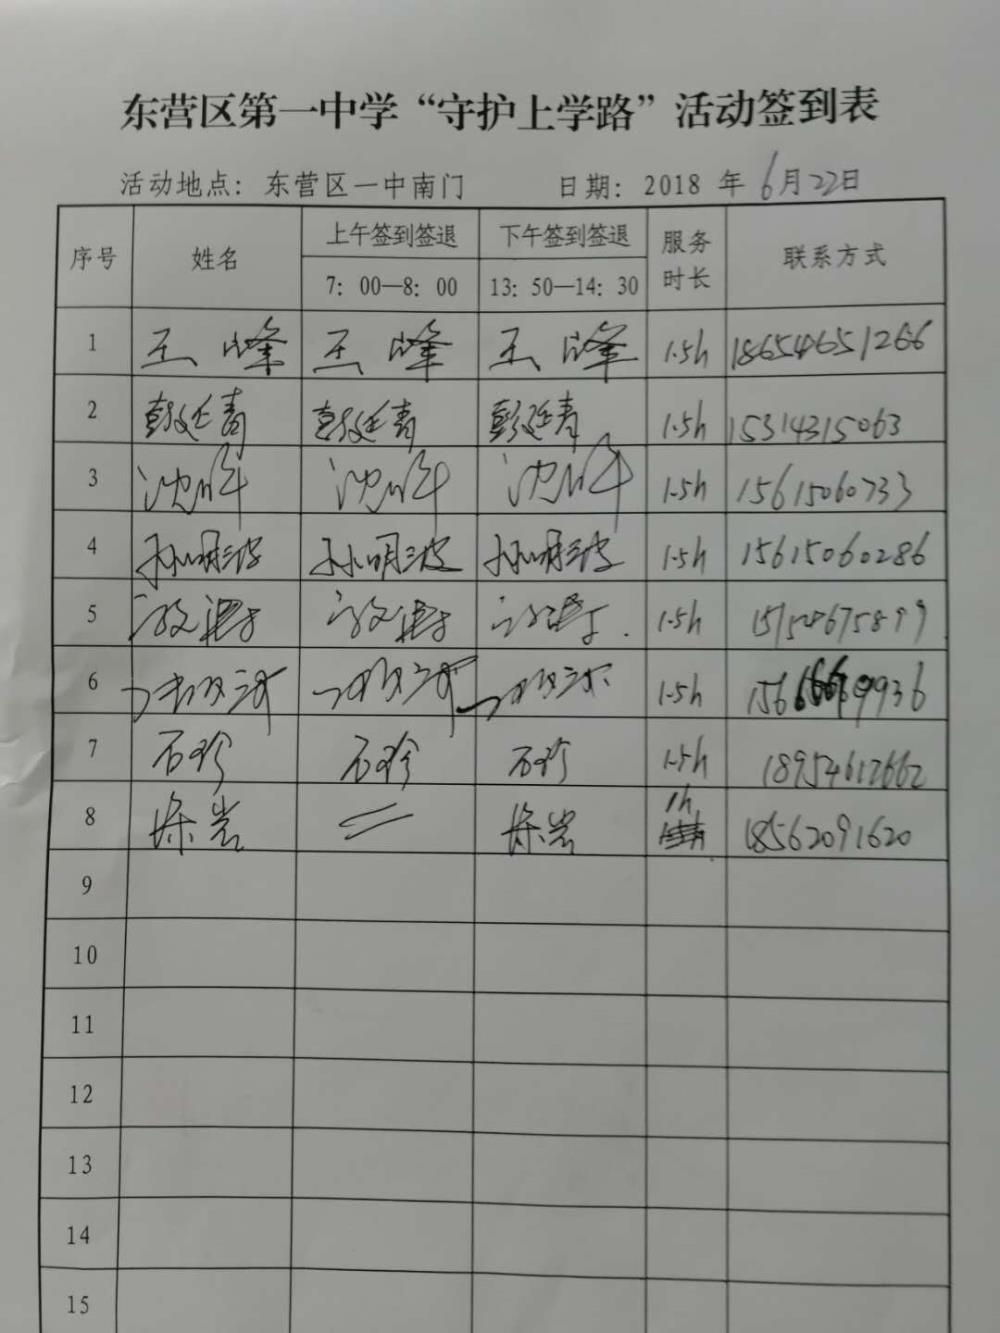 东营区第一中学“守护上学路”活动签到表
活动地点：东营区一中南门 日期：2018 年 6月22日
序号 姓名 上午签到签退 下午签到签退 服务时长 联系方式
7：00—8：00 13：50—14：30
1 王峰 王峰 王峰 1.5h 18654651266
2 彭延青 彭延青 彭延青 1.5h 15314315063
3 1.5h 15615060733
4 孙明波 孙明波 孙明波 1.5h 15615060286
5 1.5h
6 1.5h
7 石珍 石珍 石珍 1.5h 18954612662
8 徐岩 徐岩 1h 18562091620
9
10
11
12
13
14
15